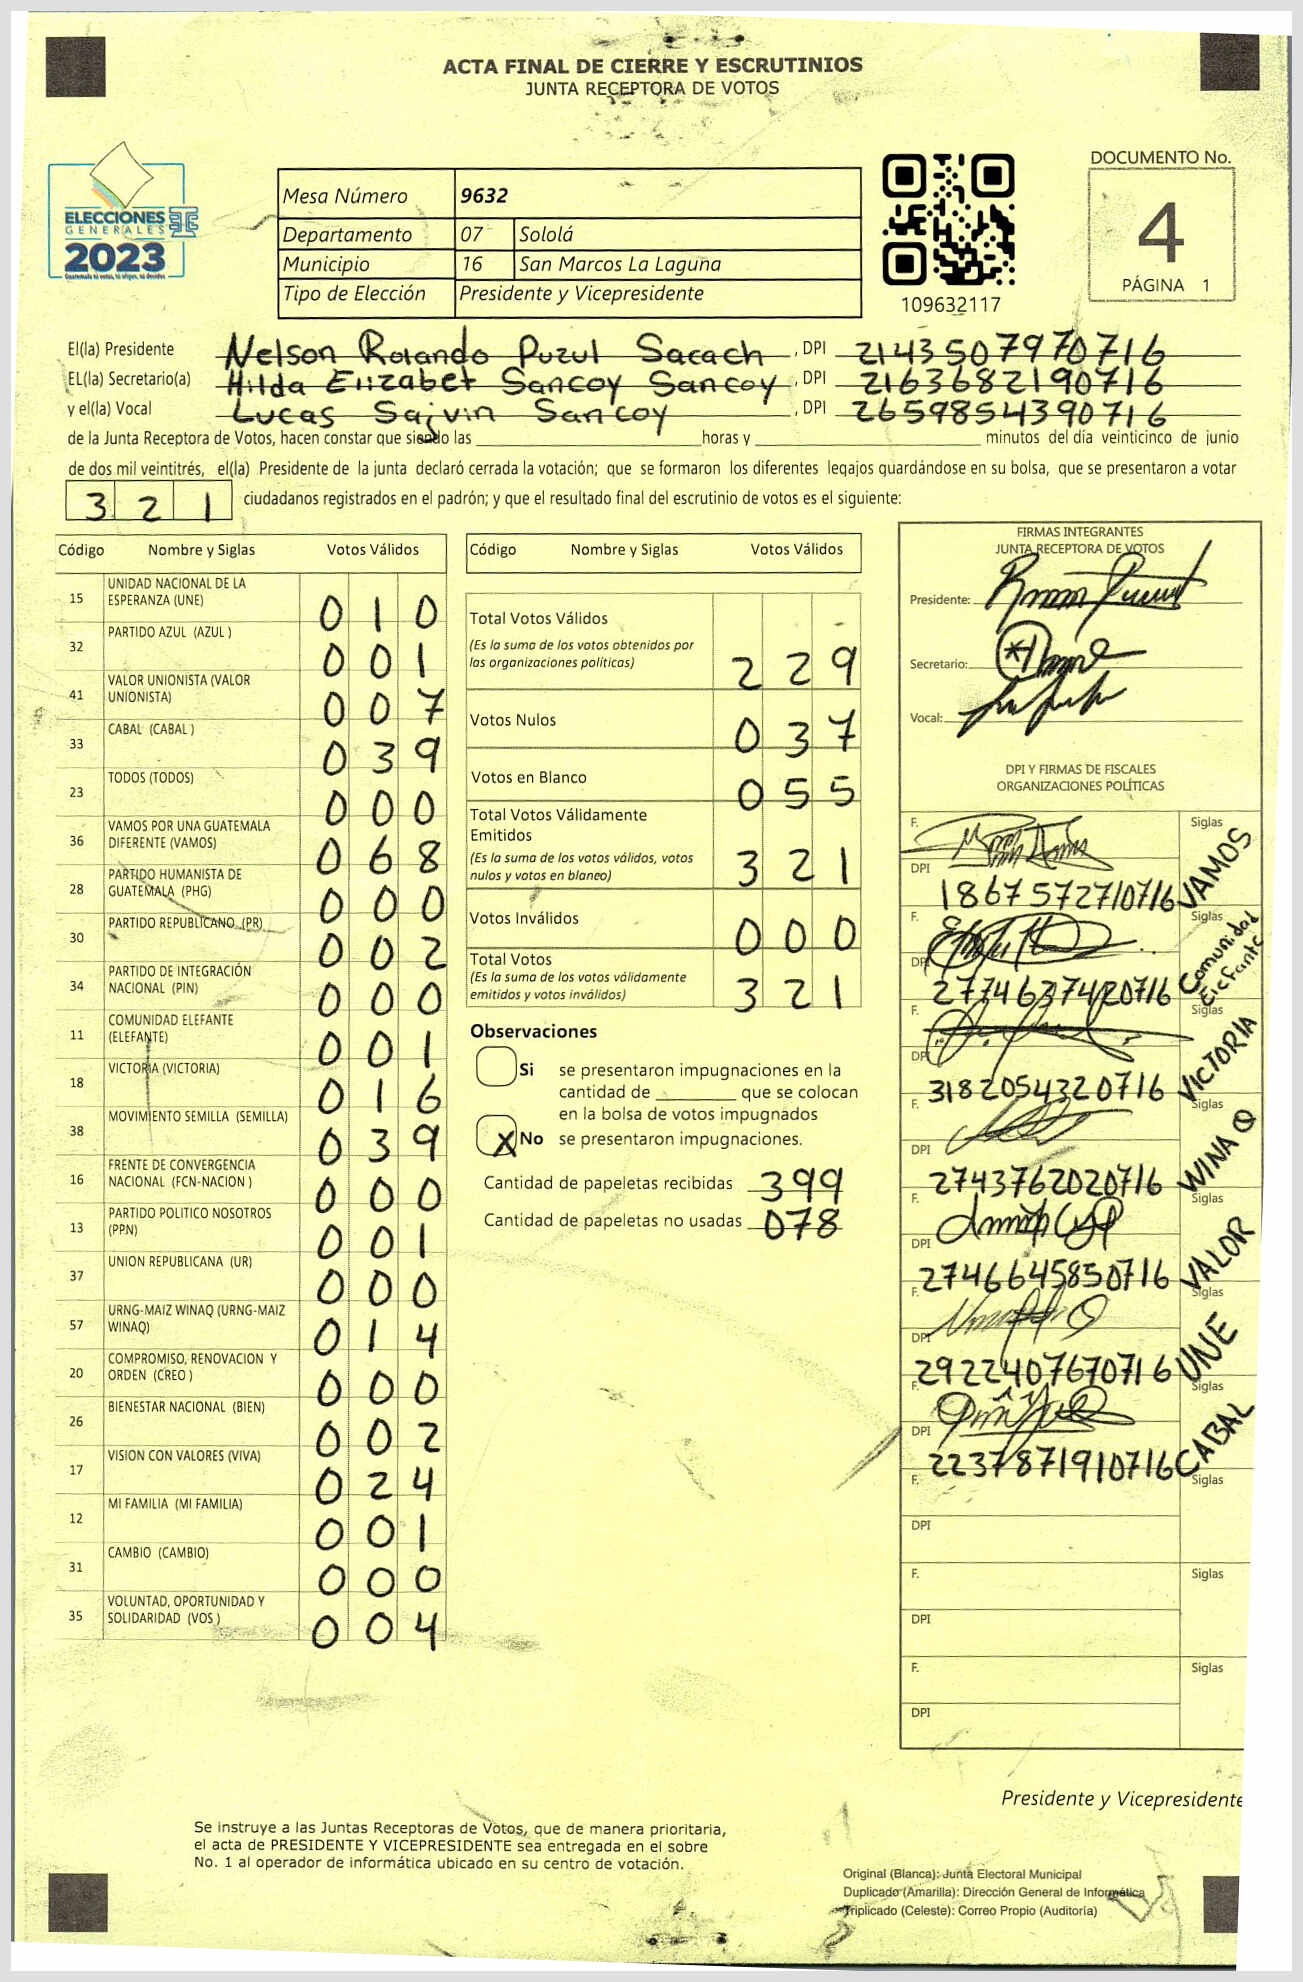 ACTA FINAL DE CIERRE Y ESCRUTINIOS
JUNTA RECEPTORA DE VOTOS
ELECCIONES
GENERALES
2023
Guatemala tú votas, tú eliges, tú decides
Mesa Número 9632
Departamento 07 Sololá
Municipio 16 San Marcos La Laguna
Tipo de Elección Presidente y Vicepresidente
109632117
DOCUMENTO No.
4
PÁGINA 1
El(la) Presidente Nelson Rolando Puzul Sacach , DPI 2143507970716
EL(la) Secretario(a) Hilda Elizabet Sancoy Sancoy , DPI 2163682190716
y el(la) Vocal Lucas Sajvin Sancoy , DPI 2659854390716
de la Junta Receptora de Votos, hacen constar que siendo las horas y minutos del día veinticinco de junio
de dos mil veintitrés, el(la) Presidente de la junta declaró cerrada la votación; que se formaron los diferentes legajos guardándose en su bolsa, que se presentaron a votar
321 ciudadanos registrados en el padrón; y que el resultado final del escrutinio de votos es el siguiente:
Código Nombre y Siglas Votos Válidos
15 UNIDAD NACIONAL DE LA
ESPERANZA (UNE) 010
32 PARTIDO AZUL (AZUL ) 001
41 VALOR UNIONISTA (VALOR
UNIONISTA) 007
33 CABAL (CABAL ) 039
23 TODOS (TODOS) 000
36 VAMOS POR UNA GUATEMALA
DIFERENTE (VAMOS) 068
28 PARTIDO HUMANISTA DE
GUATEMALA (PHG) 000
30 PARTIDO REPUBLICANO (PR) 002
34 PARTIDO DE INTEGRACIÓN
NACIONAL (PIN) 000
11 COMUNIDAD ELEFANTE
(ELEFANTE) 001
18 VICTORIA (VICTORIA) 016
38 MOVIMIENTO SEMILLA (SEMILLA) 039
16 FRENTE DE CONVERGENCIA
NACIONAL (FCN-NACION ) 000
13 PARTIDO POLITICO NOSOTROS
(PPN) 001
37 UNION REPUBLICANA (UR) 000
57 URNG-MAIZ WINAQ (URNG-MAIZ
WINAQ) 014
20 COMPROMISO, RENOVACION Y
ORDEN (CREO ) 000
26 BIENESTAR NACIONAL (BIEN) 002
17 VISION CON VALORES (VIVA) 024
12 MI FAMILIA (MI FAMILIA) 001
31 CAMBIO (CAMBIO) 000
35 VOLUNTAD, OPORTUNIDAD Y
SOLIDARIDAD (VOS ) 004
Código Nombre y Siglas Votos Válidos
Total Votos Válidos
(Es la suma de los votos obtenidos por
las organizaciones políticas) 229
Votos Nulos 037
Votos en Blanco 055
Total Votos Válidamente
Emitidos
(Es la suma de los votos válidos, votos
nulos y votos en blanco) 321
Votos Inválidos 000
Total Votos
(Es la suma de los votos válidamente
emitidos y votos inválidos) 321
Observaciones
Si se presentaron impugnaciones en la
cantidad de que se colocan
en la bolsa de votos impugnados
X No se presentaron impugnaciones.
Cantidad de papeletas recibidas 399
Cantidad de papeletas no usadas 078
FIRMAS INTEGRANTES
JUNTA RECEPTORA DE VOTOS
Presidente:
Secretario:
Vocal:
DPI Y FIRMAS DE FISCALES
ORGANIZACIONES POLÍTICAS
F. Siglas
DPI 1867572710716 VAMOS
F. Siglas
DPI 2774637420716 Comunidad
Elefante
F. Siglas
DPI 3182054320716 VICTORIA
F. Siglas
DPI 2743762020716 WINAQ
F. Siglas
DPI 2746645850716 VALOR
F. Siglas
DPI 2922407670716 UNE
F. Siglas
DPI 2237871910716 CABAL
F. Siglas
DPI
F. Siglas
DPI
F. Siglas
DPI
Presidente y Vicepresidente
Se instruye a las Juntas Receptoras de Votos, que de manera prioritaria,
el acta de PRESIDENTE Y VICEPRESIDENTE sea entregada en el sobre
No. 1 al operador de informática ubicado en su centro de votación.
Original (Blanca): Junta Electoral Municipal
Duplicado (Amarilla): Dirección General de Informática
Triplicado (Celeste): Correo Propio (Auditoría)